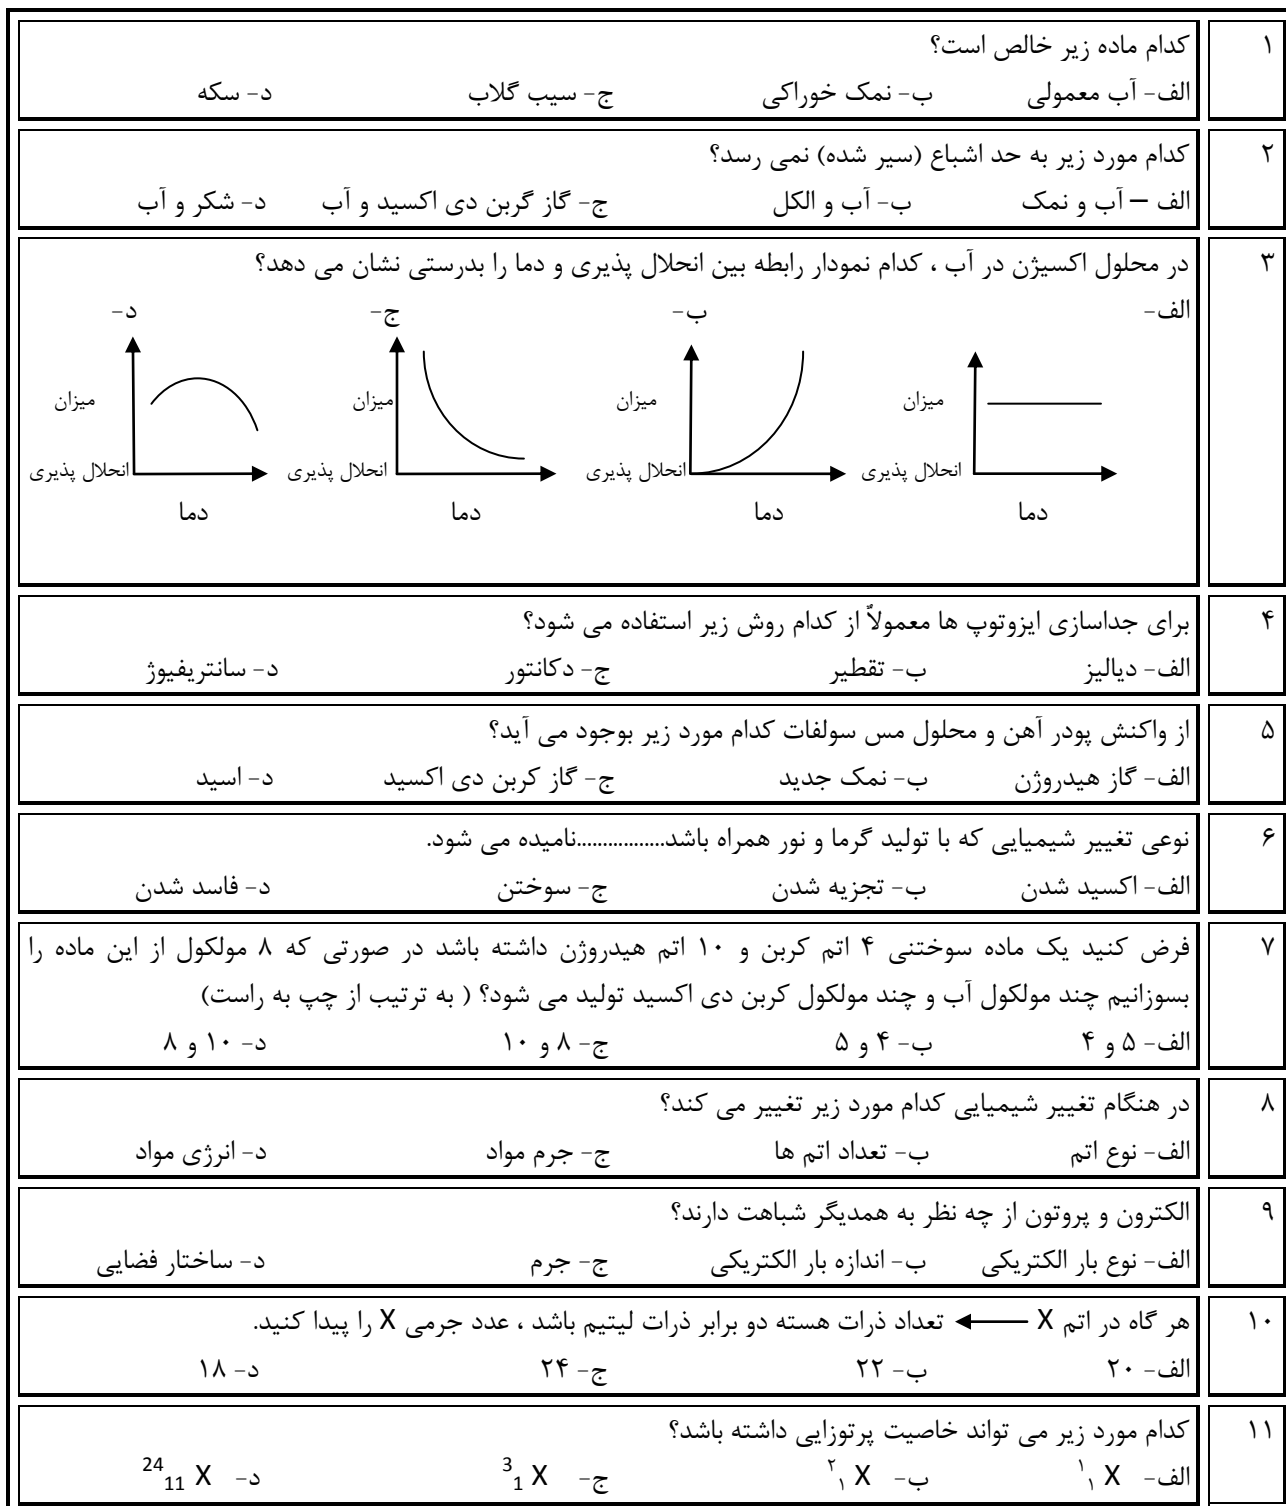 ۱ کدام ماده زیر خالص است؟
الف- آب معمولی ب- نمک خوراکی ج- سیب گلاب د- سکه
۲ کدام مورد زیر به حد اشباع (سیر شده) نمی رسد؟
الف – آب و نمک ب- آب و الکل ج- گاز گربن دی اکسید و آب د- شکر و آب
۳ در محلول اکسیژن در آب ، کدام نمودار رابطه بین انحلال پذیری و دما را بدرستی نشان می دهد؟
الف- ب- ج- د-
میزان میزان میزان میزان
انحلال پذیری انحلال پذیری انحلال پذیری انحلال پذیری
دما دما دما دما
۴ برای جداسازی ایزوتوپ ها معمولاٌ از کدام روش زیر استفاده می شود؟
الف- دیالیز ب- تقطیر ج- دکانتور د- سانتریفیوژ
۵ از واکنش پودر آهن و محلول مس سولفات کدام مورد زیر بوجود می آید؟
الف- گاز هیدروژن ب- نمک جدید ج- گاز کربن دی اکسید د- اسید
۶ نوعی تغییر شیمیایی که با تولید گرما و نور همراه باشد.................نامیده می شود.
الف- اکسید شدن ب- تجزیه شدن ج- سوختن د- فاسد شدن
۷ فرض کنید یک ماده سوختنی ۴ اتم کربن و ۱۰ اتم هیدروژن داشته باشد در صورتی که ۸ مولکول از این ماده را
بسوزانیم چند مولکول آب و چند مولکول کربن دی اکسید تولید می شود؟ ( به ترتیب از چپ به راست)
الف- ۵ و ۴ ب- ۴ و ۵ ج- ۸ و ۱۰ د- ۱۰ و ۸
۸ در هنگام تغییر شیمیایی کدام مورد زیر تغییر می کند؟
الف- نوع اتم ب- تعداد اتم ها ج- جرم مواد د- انرژی مواد
۹ الکترون و پروتون از چه نظر به همدیگر شباهت دارند؟
الف- نوع بار الکتریکی ب- اندازه بار الکتریکی ج- جرم د- ساختار فضایی
۱۰ هر گاه در اتم X ← تعداد ذرات هسته دو برابر ذرات لیتیم باشد ، عدد جرمی X را پیدا کنید.
الف- ۲۰ ب- ۲۲ ج- ۲۴ د- ۱۸
۱۱ کدام مورد زیر می تواند خاصیت پرتوزایی داشته باشد؟
الف- ¹₁ X ب- ²₁ X ج- ³₁ X د- ²⁴₁₁ X